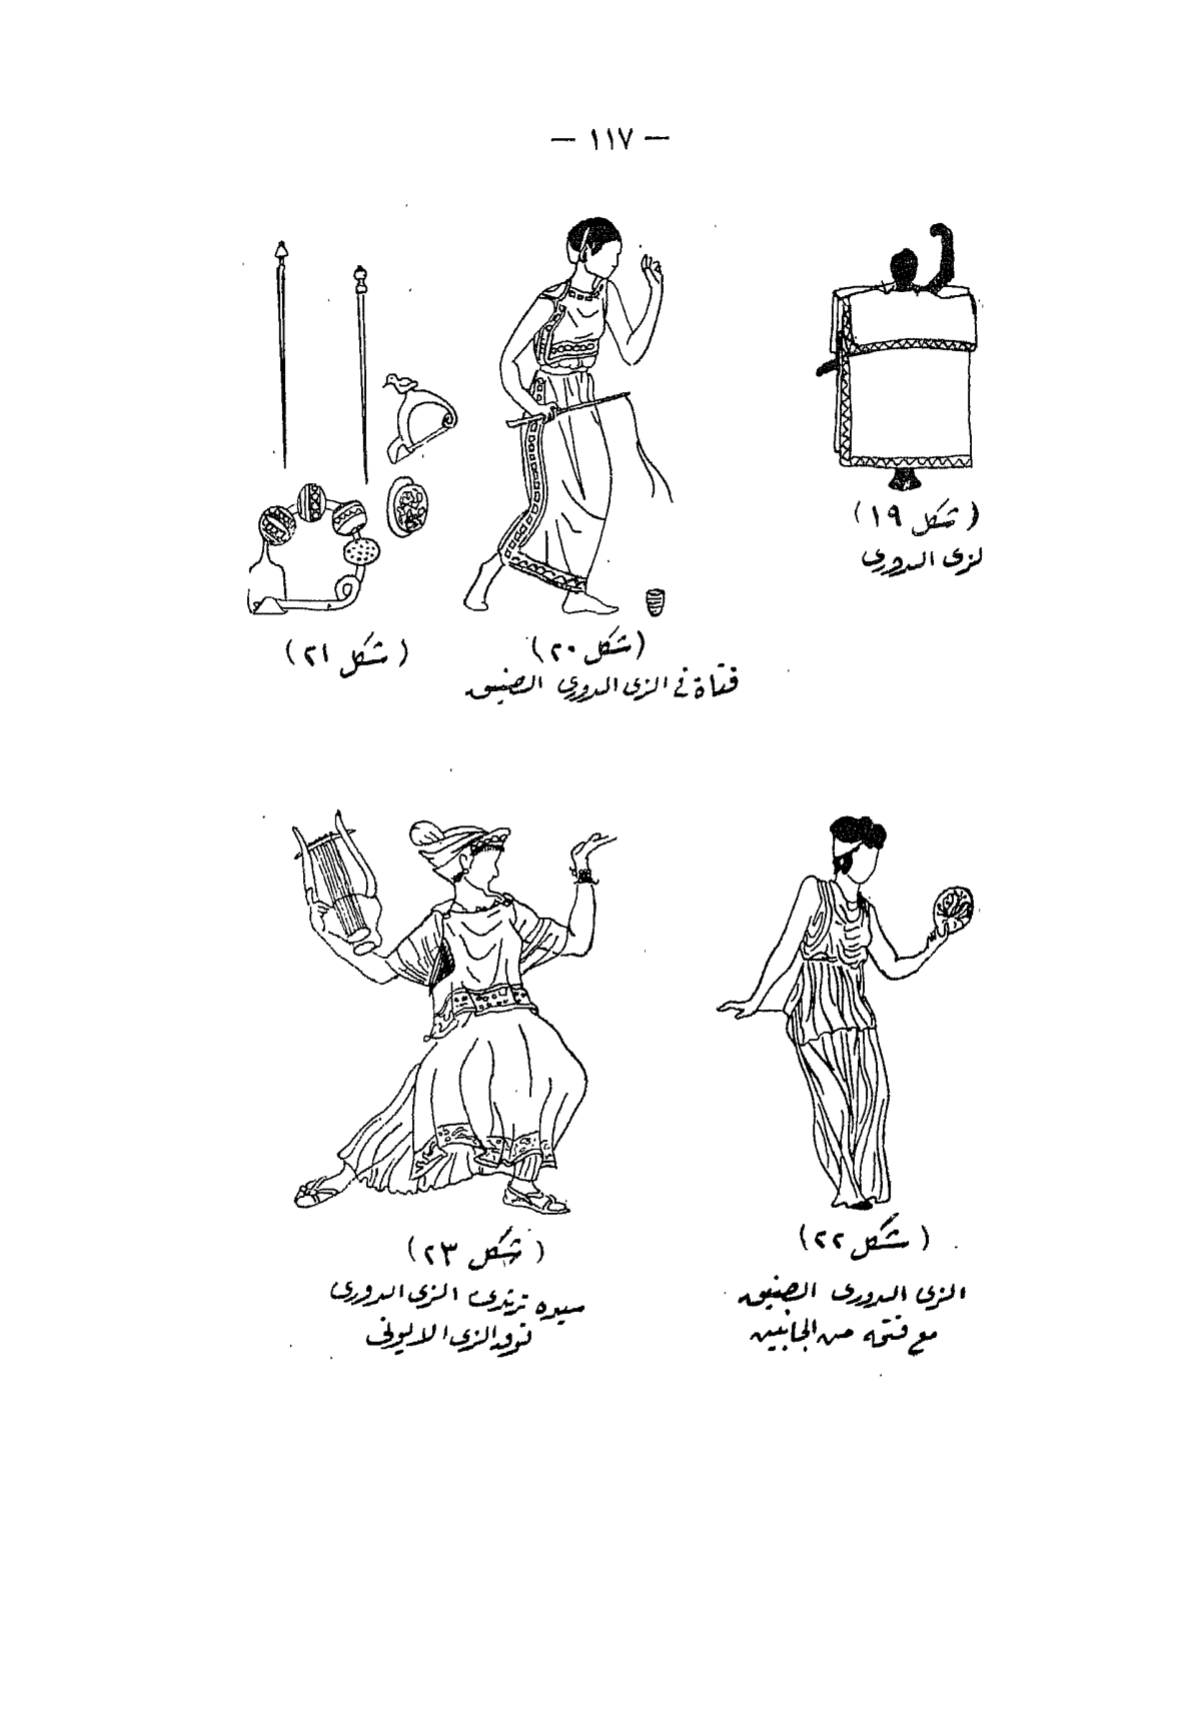 — ١١٧ —
(شكل ١٩)
لزى الدورى
(شكل ٢٠)
فتاة فى الزى الدورى الضيق
(شكل ٢١)
(شكل ٢٢)
الزى الدورى الضيق
مع فتحه من الجانبين
(شكل ٢٣)
سيده ترتدى الزى الدورى
فوق الزى الايونى